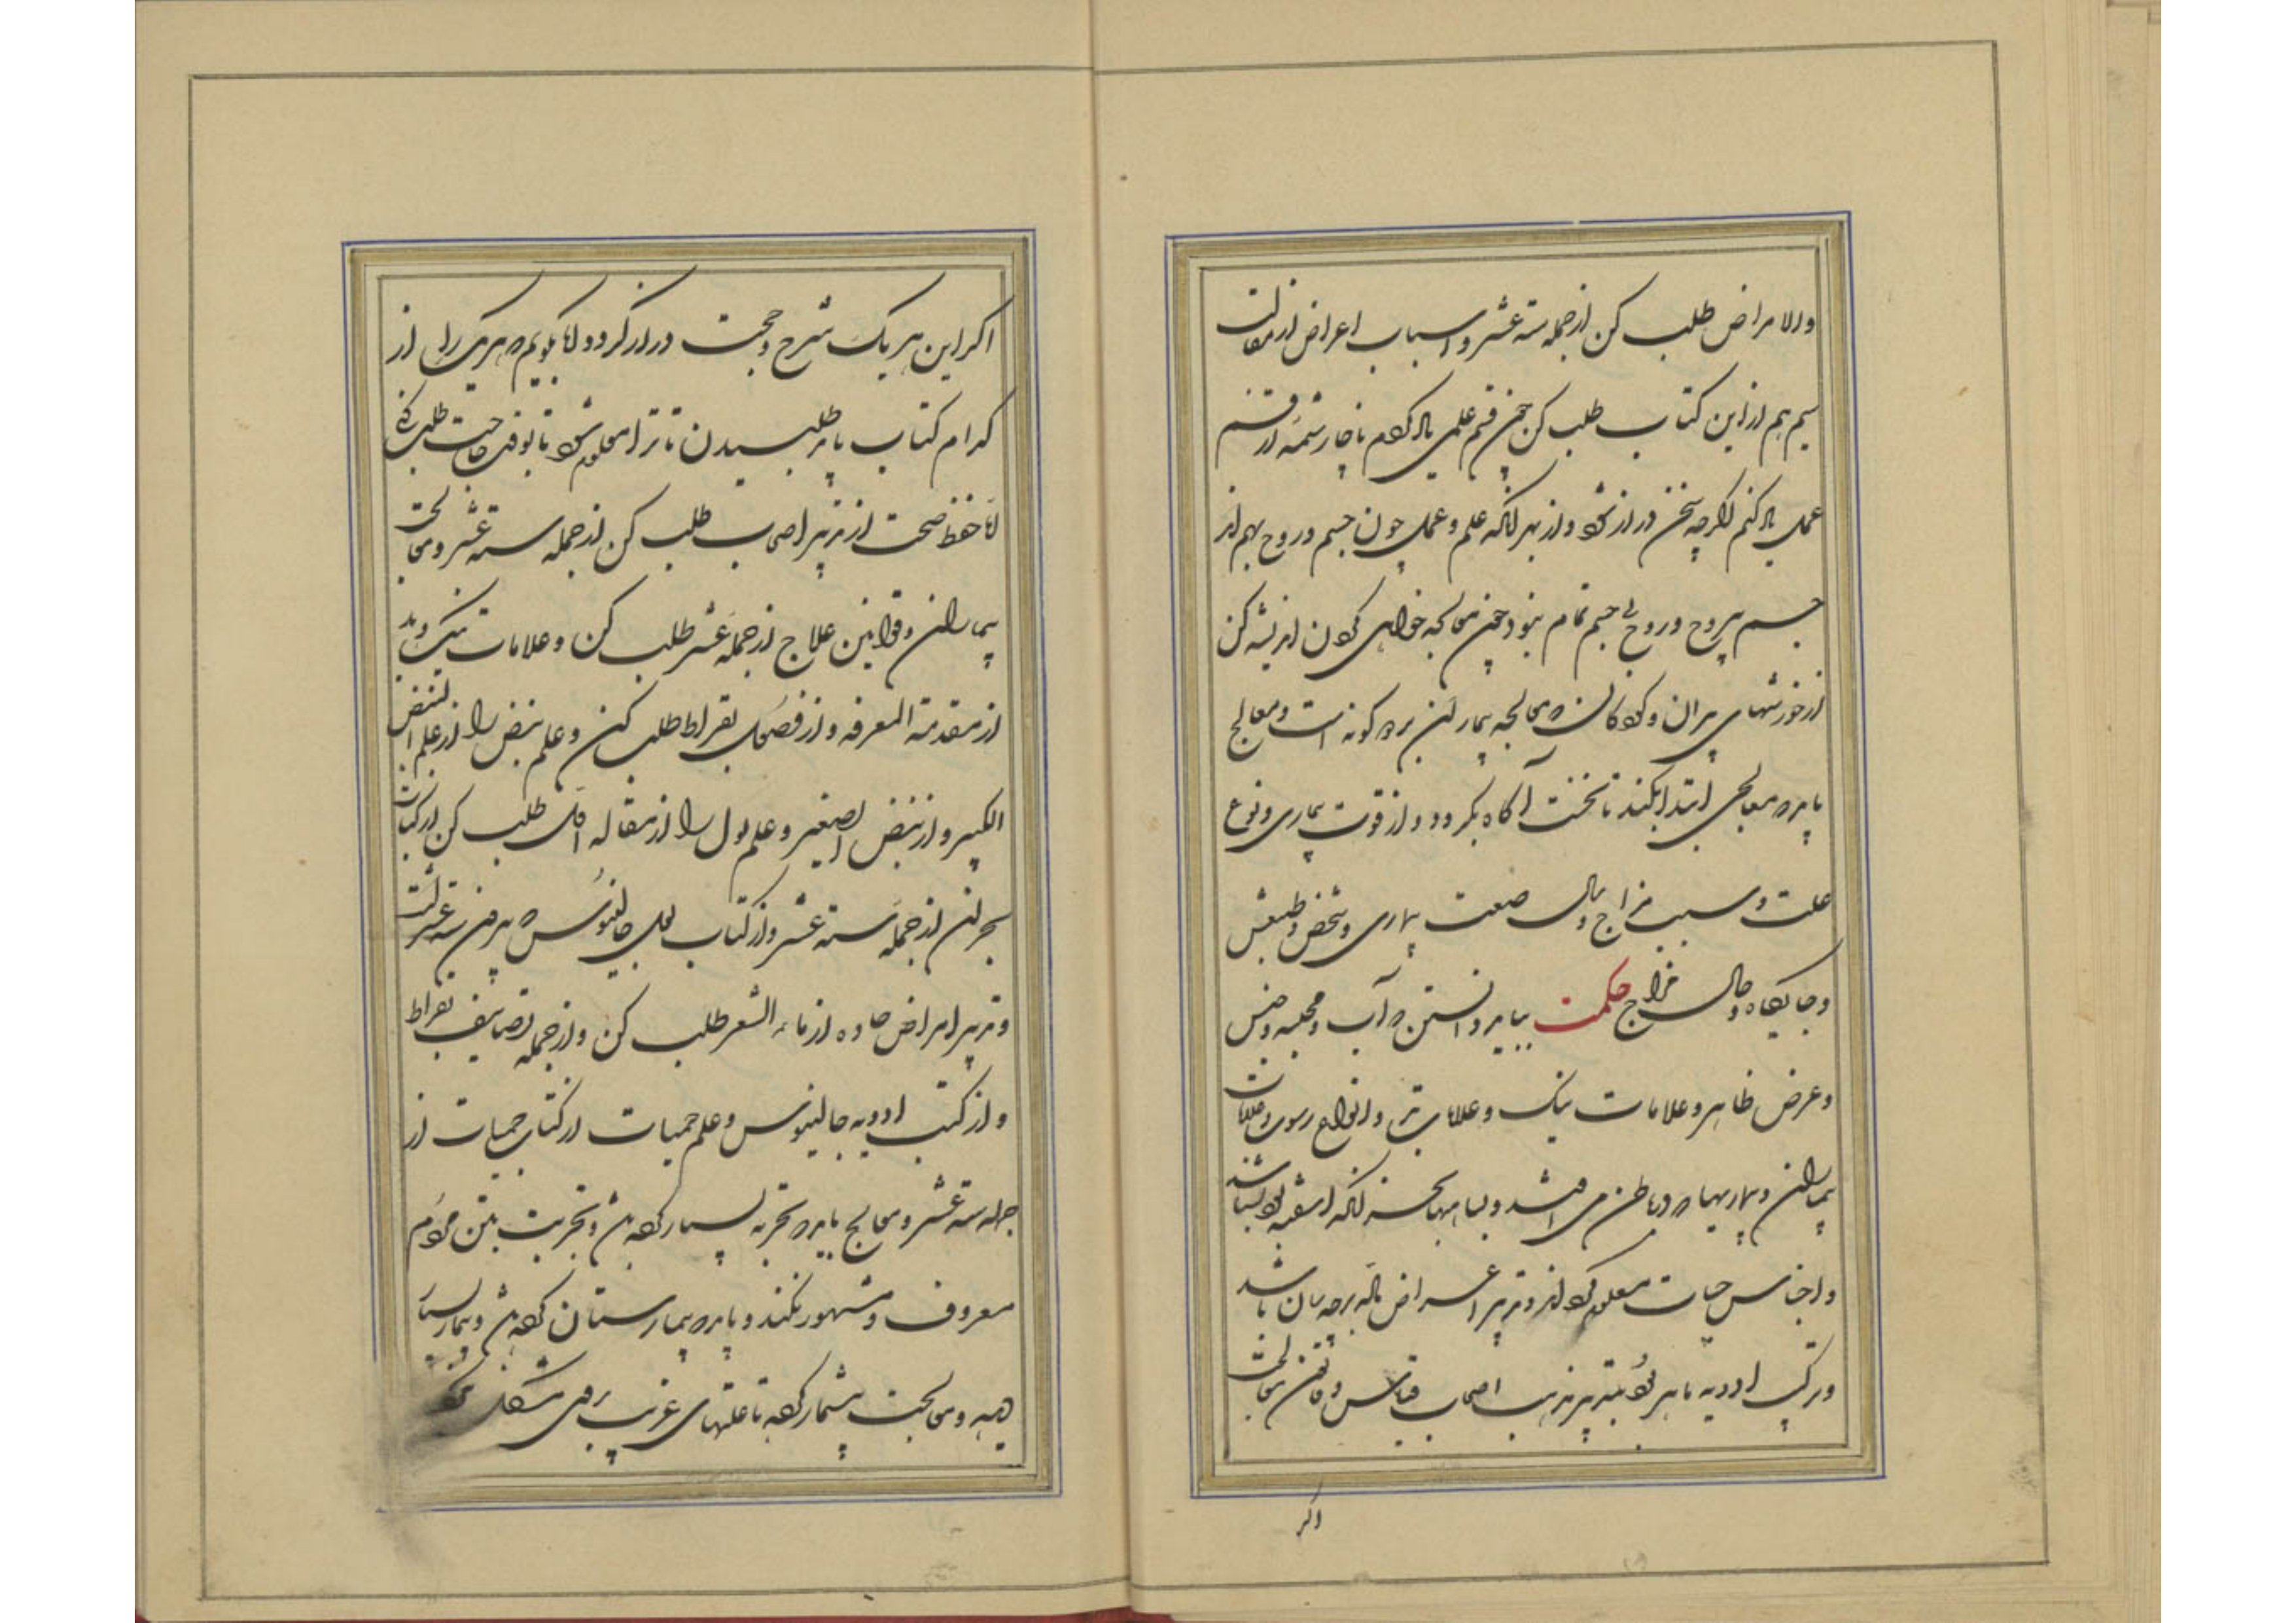 والامراض طلب کن از جمله سته عشر و اسباب اعراض از مقالت
سیم هم ازین کتاب طلب کن چون قسم علمی یاد کردم ناچار شمه از قسم
عملی یاد کنم اگرچه سخن دراز شود و از بهر آنکه علم و عمل چون جسم و روح بهم‌اند
جسم بیروح و روح بی جسم تمام نبود چون معالجه خواهی کردن اندیشه کن
از خورشهای پیران و کودکان که معالجه بیماران بر دو گونه است و معالج
باید که معالجی ابتدا نکند تا نخست آگاه نگردد از قوت بیماری و نوع
علت و سبب مزاج و سال و صنعت بیماری و شخص و طبعش
و جایگاه و حال مزاج حکمت بباید دانستن که آب و مجسه و جنس
و عرض ظاهر و علامات نیک و علامات بد و انواع رسوب و علامات
بیماران و بیماریها که در باطن می افتد و
و اجناس حمیات معلوم کرده‌اند و تدبیر امراض حاده بر چه سان باشد
و ترکیب ادویه ماهر بود بتدبیر مذهب اصحاب قیاس و قانون معالجت
اگر
اگر این هر یک شرح و حجت دراز گردد اما بگویم که هر یکی را از
کدام کتاب باید طلبیدن تا ترا معلوم شود تا بوقت حاجت طلب کنی
اما حفظ صحت از تدبیر اصحا طلب کن از جمله سته عشر و معالجت
بیماران و قوانین علاج از جمله عشر طلب کن و علامات نیک و بد
از مقدمة المعرفه و از فصول بقراط طلب کن و علم نبض را از علم النبض
الکبیر و از نبض الصغیر و علم بول را از مقاله اول طلب کن از کتاب
بحران از جمله سته عشر و از کتاب بول جالینوس که بیرون سته عشر است
و تدبیر امراض حاده از ماء الشعیر طلب کن و از جمله تصانیف بقراط
و از کتب ادویه جالینوس و علم حمیات از کتاب حمیات از
جمله سته عشر و معالج باید که تجربه بسیار کرده باشد و تجربت بتن مردم
معروف و مشهور نکند و باید که بیمارستان کرده باشد و بیمار بسیار
دیده و معالجت بیشمار کرده تا علتهای غریب بروی مشکل